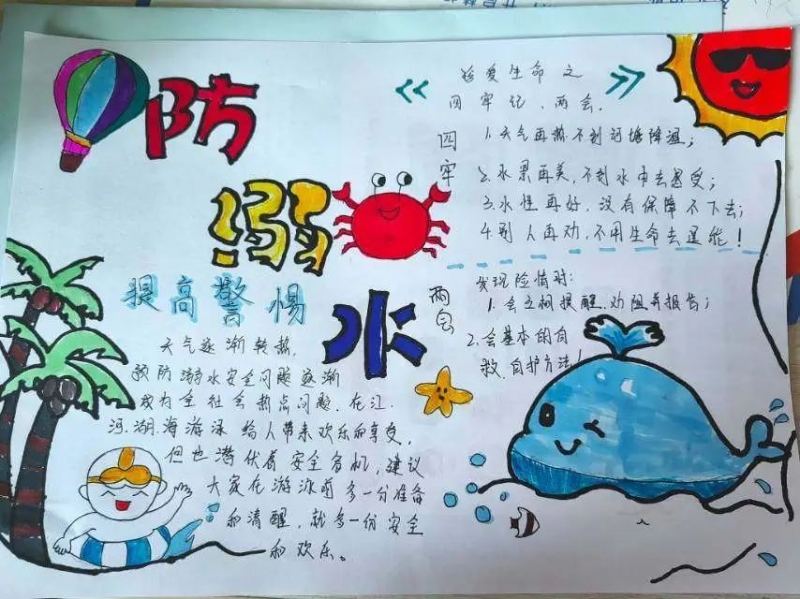 防
溺
水
提高警惕
天气逐渐转热,
预防溺水安全问题逐渐
成为全社会热点问题,在江.
河.湖.海游泳给人带来欢乐和享受,
但也潜伏着安全危机,建议
大家在游泳前多一份准备
和清醒,就多一份安全
和欢乐。
《珍爱生命之》
四牢记、两会.
四牢
1.天气再热.不到河塘降温;
2.水景再美,不到水中去感受;
3.水性再好,没有保障不下去;
4.别人再劝,不用生命去逞能!
两会
发现险情时:
1.会立相提醒.劝阻并报告;
2.会基本的自
救.自护方法!